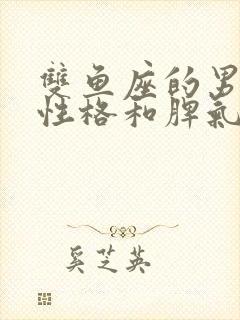 雙鱼座的男
性格和脾氣
奚芝英